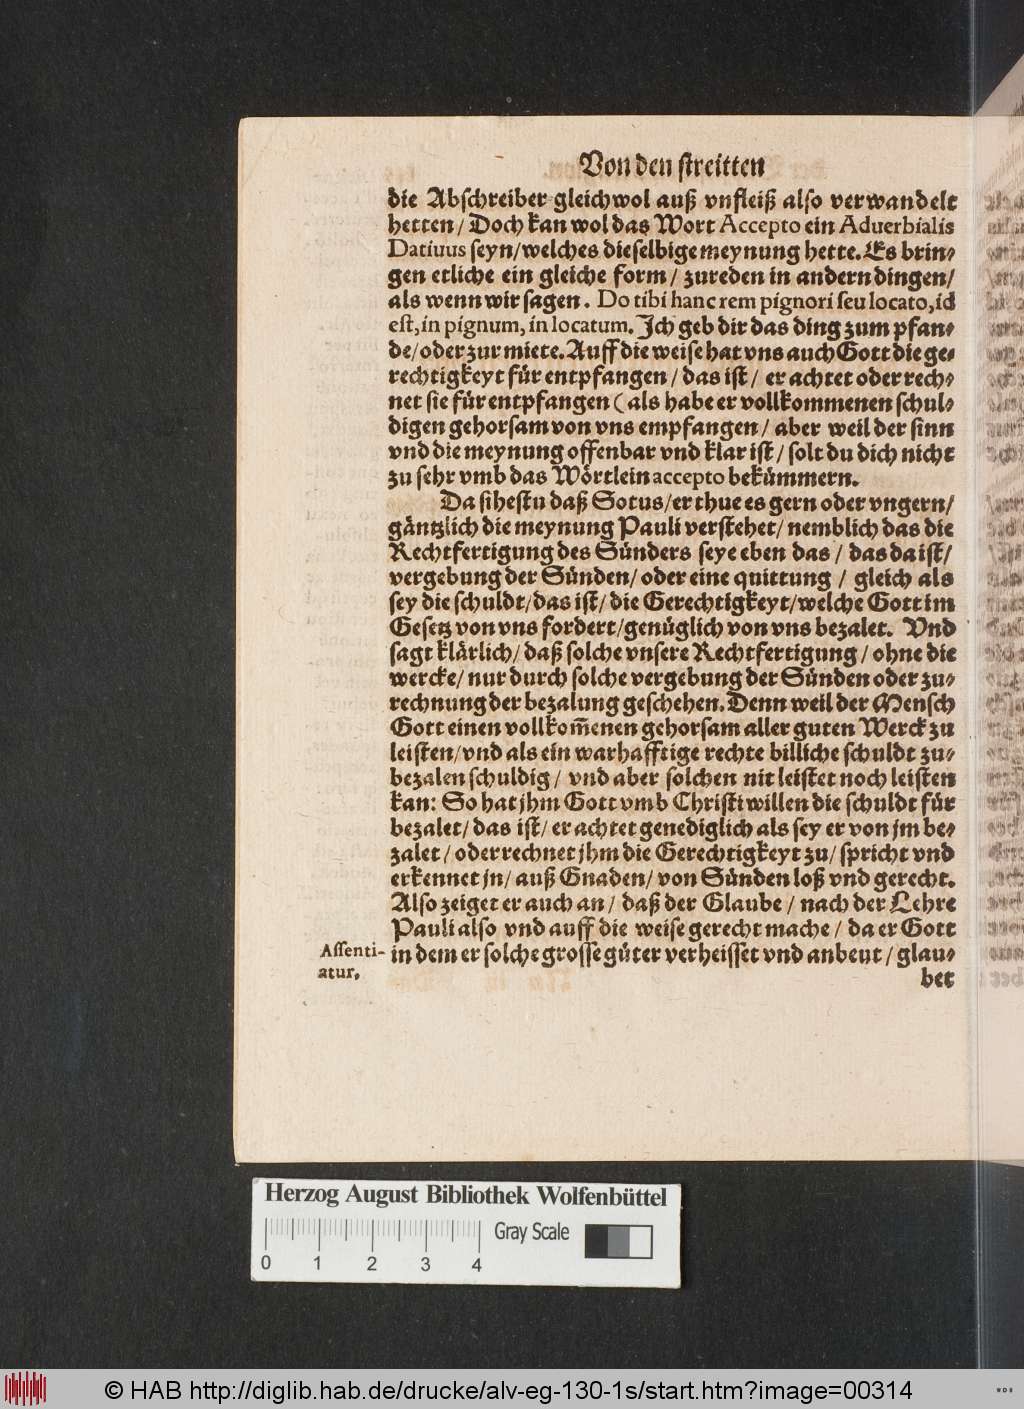 Von den streitten
die Abschreiber gleichwol auß vnfleiß also verwandelt
hetten / Doch kan wol das Wort Accepto ein Aduerbialis
Datiuus seyn/welches dieselbige meynung hette. Es brin⸗
gen etliche ein gleiche form / zureden in andern dingen/
als wenn wir sagen. Do tibi hanc rem pignori seu locato, id
est, in pignum, in locatum. Ich geb dir das ding zum pfan⸗
de/oder zur miete. Auff die weise hat vns auch Gott die ge⸗
rechtigkeyt für entpfangen / das ist / er achtet oder rech⸗
net sie für entpfangen (als habe er vollkommenen schul⸗
digen gehorsam von vns empfangen / aber weil der sinn
vnd die meynung offenbar vnd klar ist / solt du dich nicht
zu sehr vmb das Wörtlein accepto bekümmern.
Da sihestu daß Sotus/er thue es gern oder vngern/
gäntzlich die meynung Pauli verstehet/ nemblich das die
Rechtfertigung des Sünders seye eben das / das da ist/
vergebung der Sünden/ oder eine quittung / gleich als
sey die schuldt/das ist/ die Gerechtigkeyt/welche Gott im
Gesetz von vns fordert/genüglich von vns bezalet. Vnd
sagt klärlich/ daß solche vnsere Rechtfertigung / ohne die
wercke/ nur durch solche vergebung der Sünden oder zu⸗
rechnung der bezalung geschehen. Denn weil der Mensch
Gott einen vollkom̃enen gehorsam aller guten Werck zu
leisten/vnd als ein warhafftige rechte billiche schuldt zu⸗
bezalen schuldig / vnd aber solchen nit leistet noch leisten
kan: So hat jhm Gott vmb Christi willen die schuldt für
bezalet/ das ist/ er achtet genediglich als sey er von jm be⸗
zalet / oder rechnet jhm die Gerechtigkeyt zu/ spricht vnd
erkennet jn/ auß Gnaden/ von Sünden loß vnd gerecht.
Also zeiget er auch an/ daß der Glaube / nach der Lehre
Pauli also vnd auff die weise gerecht mache / da er Gott
Assenti-
atur.
in dem er solche grosse güter verheisset vnd anbeut / glau⸗
bet
Herzog August Bibliothek Wolfenbüttel
Gray Scale
0 1 2 3 4
© HAB http://diglib.hab.de/drucke/alv-eg-130-1s/start.htm?image=00314